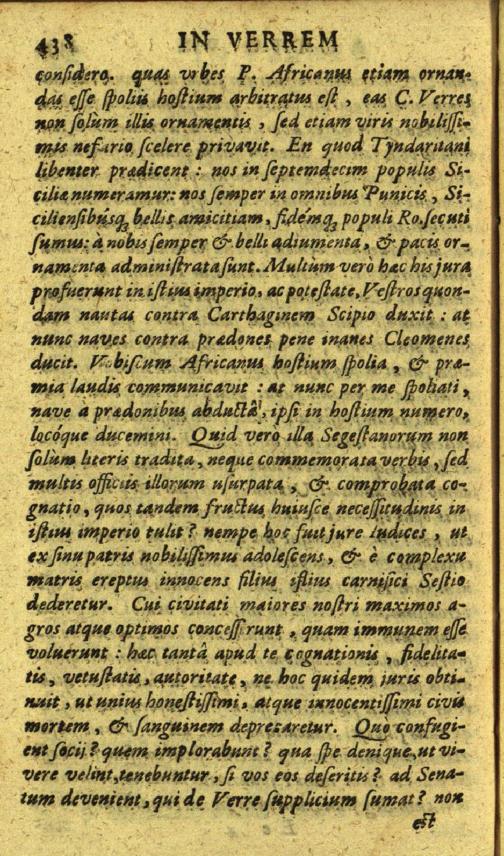 438 IN VERREM
considero. quas vrbes P. Africanus etiam ornan-
das esse spoliis hostium arbitratus est, eas C. Verres
non solùm illis ornamentis, sed etiam viris nobilissi-
mis nefario scelere privavit. En quod Tyndaritani
libenter prædicent: nos in septemdecim populis Si-
ciliæ numeramur: nos semper in omnibus Punicis, Si-
ciliensibúsq; bellis amicitiam, fidémq; populi Ro. secuti
sumus: à nobis semper & belli adiumenta, & pacis or-
namenta administrata sunt. Multùm verò hæc his jura
profuerunt in istius imperio, ac potestate. Vestros quon-
dam nautas contra Carthaginem Scipio duxit: at
nunc naves contra prædones pene inanes Cleomenes
ducit. Vobiscum Africanus hostium spolia, & præ-
mia laudis communicavit: at nunc per me spoliati,
nave à prædonibus abductâ, ipsi in hostium numero,
locóque ducemini. Quid verò illa Segestanorum non
solùm literis tradita, neque commemorata verbis, sed
multis officiis illorum usurpata, & comprobata co-
gnatio, quos tandem fructus huiusce necessitudinis in
istius imperio tulit? nempe hoc fuit jure Iudices, ut
ex sinu patris nobilissimus adolescens, & è complexu
matris ereptus innocens filius istius carnifici Sestio
dederetur. Cui civitati maiores nostri maximos a-
gros atque optimos concesserunt, quam immunem esse
voluerunt: hæc tantâ apud te cognationis, fidelita-
tis, vetustatis, autoritate, ne hoc quidem juris obti-
nuit, ut unius honestissimi, atque innocentissimi civis
mortem, & sanguinem deprecaretur. Quò confugi-
ent socij? quem implorabunt? qua spe denique, ut vi-
vere velint, tenebuntur, si vos eos deseritis? ad Sena-
tum devenient, qui de Verre supplicium sumat? non
est